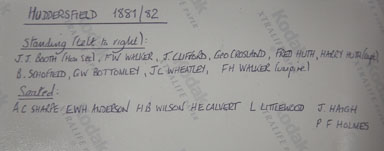 HUDDERSFIELD 1881/82
Standing (left to right):
J.I. BOOTH (Hon Sec), FW WALKER, J. CLIFFORD, GEO CROSLAND, FRED HUTH, HARRY HUTH (Capt)
B. SCHOFIELD, G.W BOTTOMLEY, J.C WHEATLEY, FH WALKER (umpire)
Seated:
A C SHARPE EWH ANDERSON H B WILSON H E CALVERT L LITTLEWOOD J. HAIGH
P F HOLMES